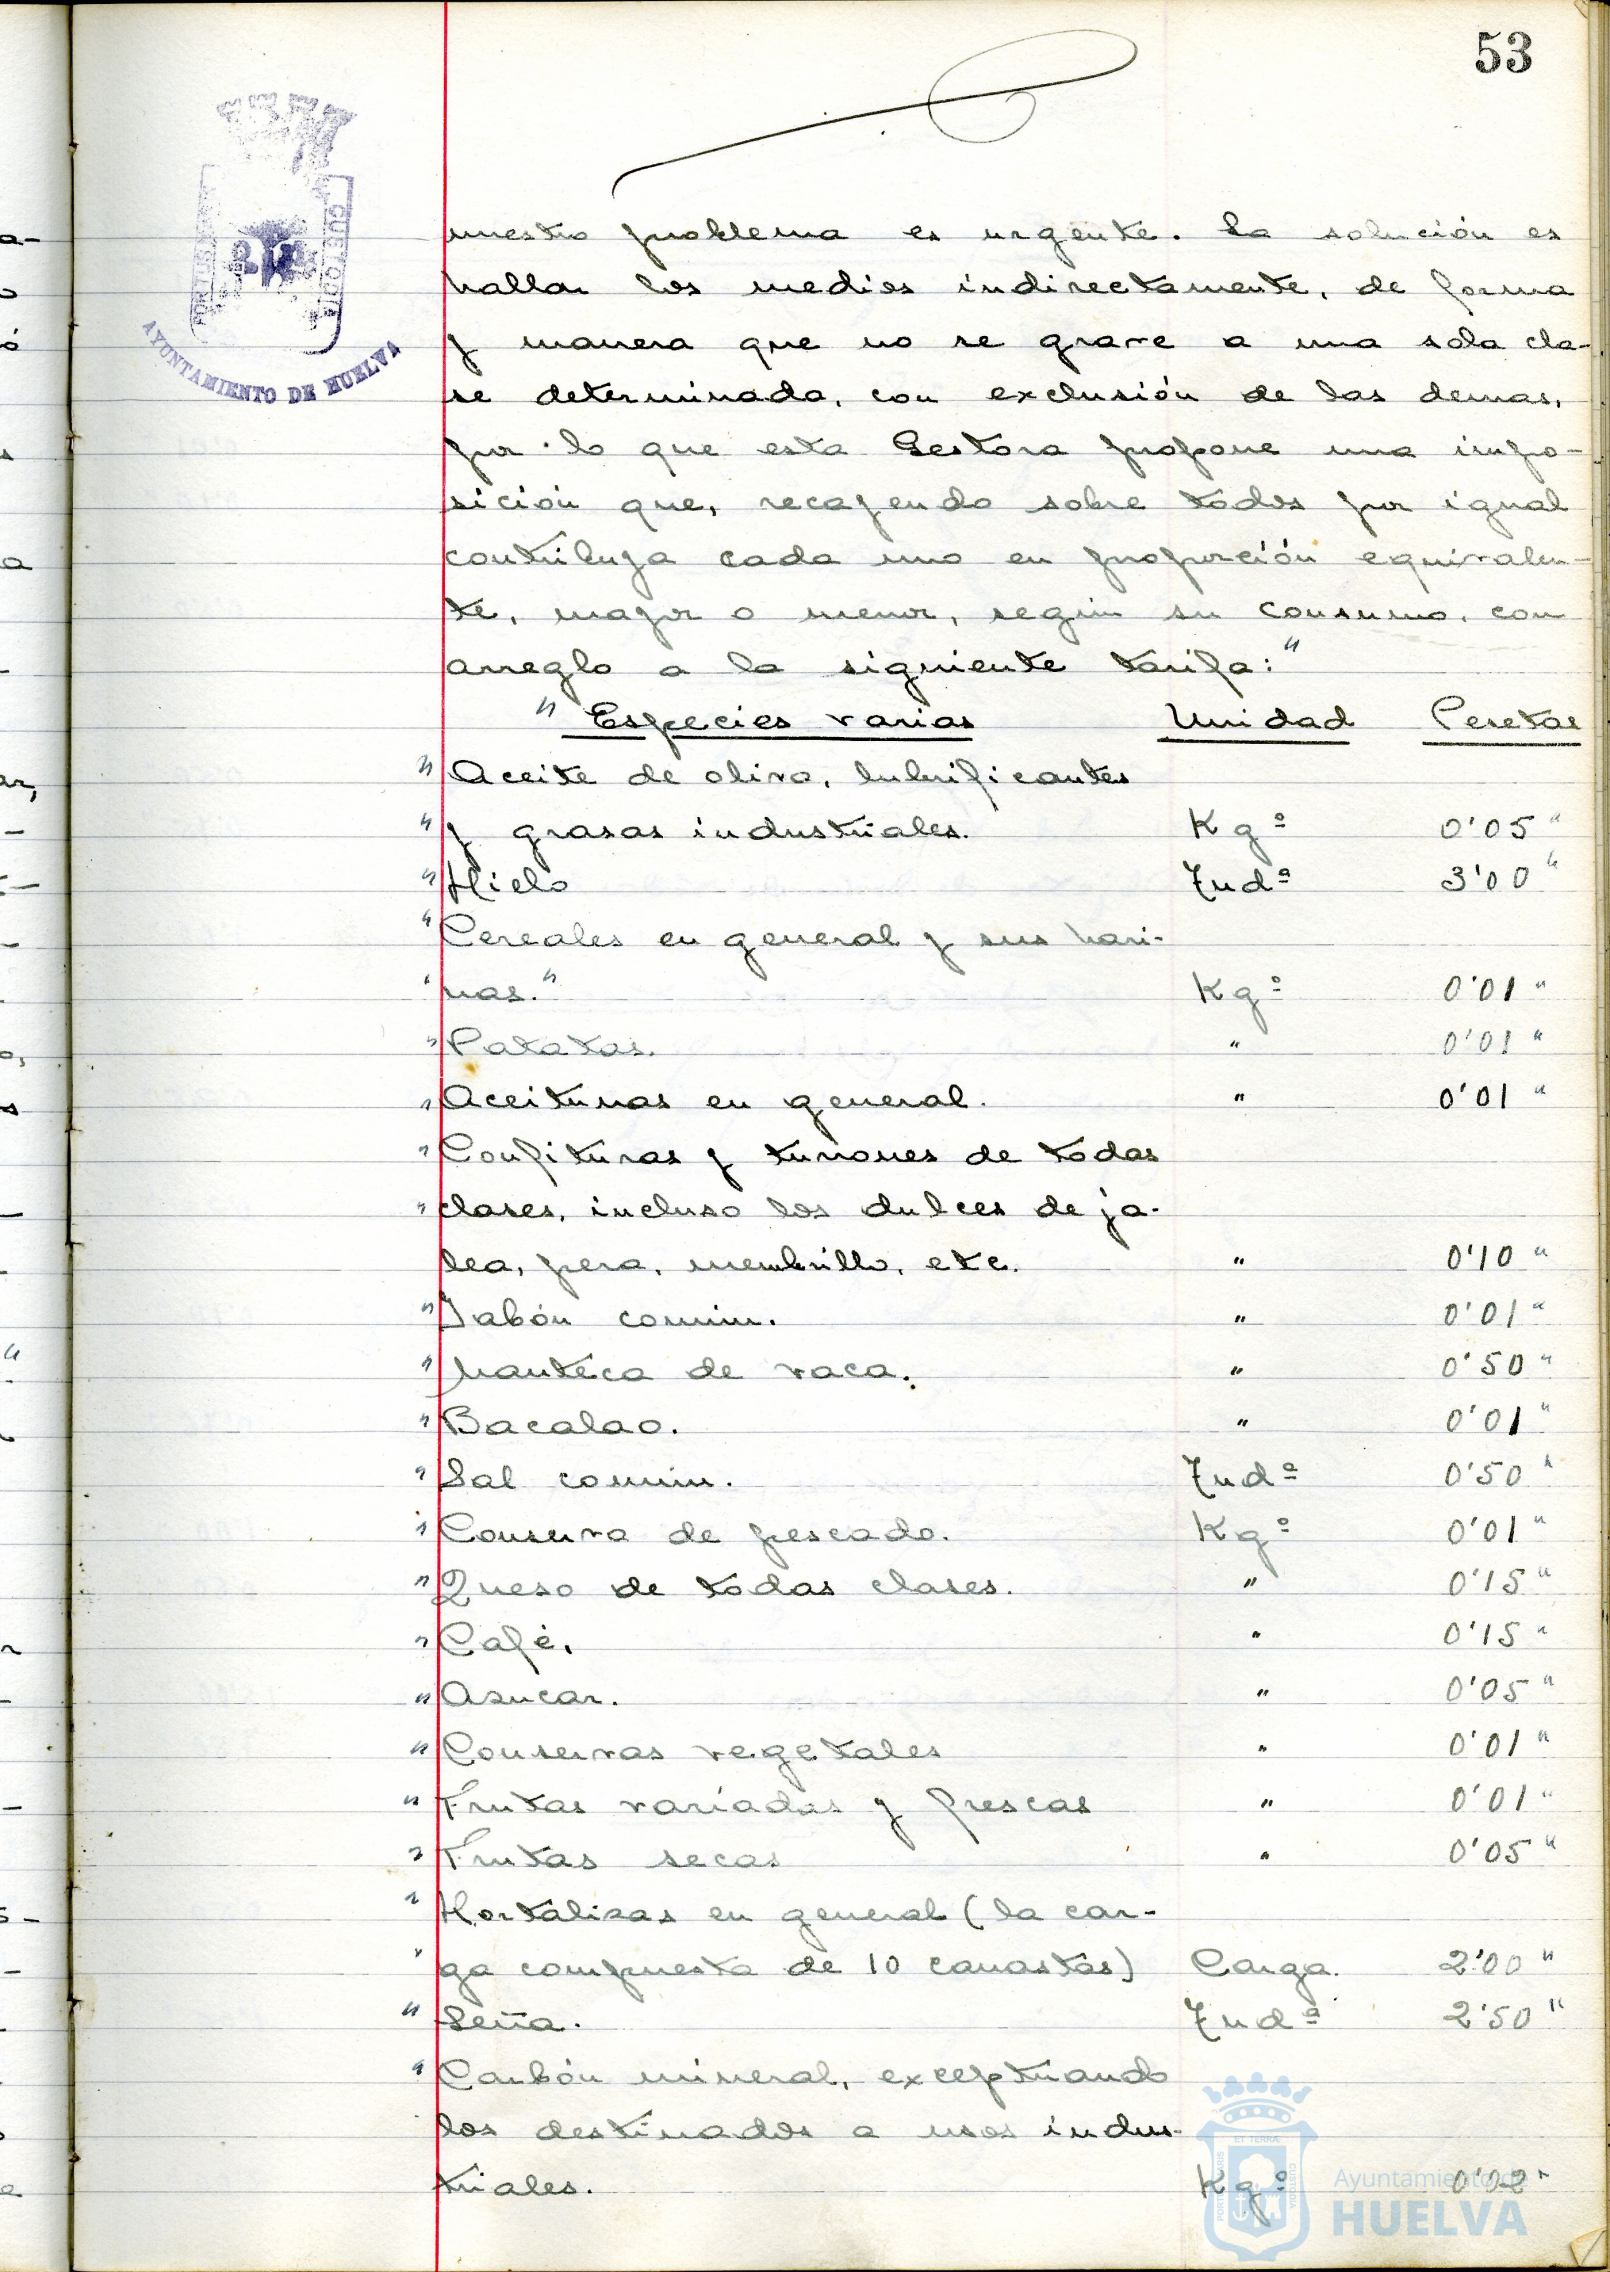 53
AYUNTAMIENTO DE HUELVA
nuestro problema es urgente. La solución es
hallar los medios indirectamente, de forma
y manera que no se grave a una sola cla-
se determinada, con exclusión de las demas,
por lo que esta Gestora propone una impo-
sición que, recayendo sobre todos por igual
contribuya cada uno en proporción equivalen-
te, mayor o menor, según su consumo, con
arreglo a la siguiente tarifa:"
" Especies varias Unidad Pesetas
" Aceite de oliva, lubrificantes
" y grasas industriales. Kgº 0'05 "
" Hielo Tndª 3'00 "
" Cereales en general y sus hari-
" nas." Kgº 0'01 "
" Patatas. " 0'01 "
" Aceitunas en general. " 0'01 "
" Confituras y turrones de todas
" clases, incluso los dulces de ja-
lea, pera, membrillo, etc. " 0'10 "
" Jabón común. " 0'01 "
" Manteca de vaca. " 0'50 "
" Bacalao. " 0'01 "
" Sal común. Tndª 0'50 "
" Conserva de pescado. Kgº 0'01 "
" Queso de todas clases. " 0'15 "
" Café. " 0'15 "
" Azucar. " 0'05 "
" Conservas vegetales " 0'01 "
" Frutas variadas y frescas " 0'01 "
" Frutas secas " 0'05 "
" Hortalizas en general (la car-
" ga compuesta de 10 canastas) Carga. 2'00 "
" Leña. Tndª 2'50 "
" Carbón mineral, exceptuando
los destinados a usos indus-
triales. Kgº 0'02 "
Ayuntamiento de
HUELVA